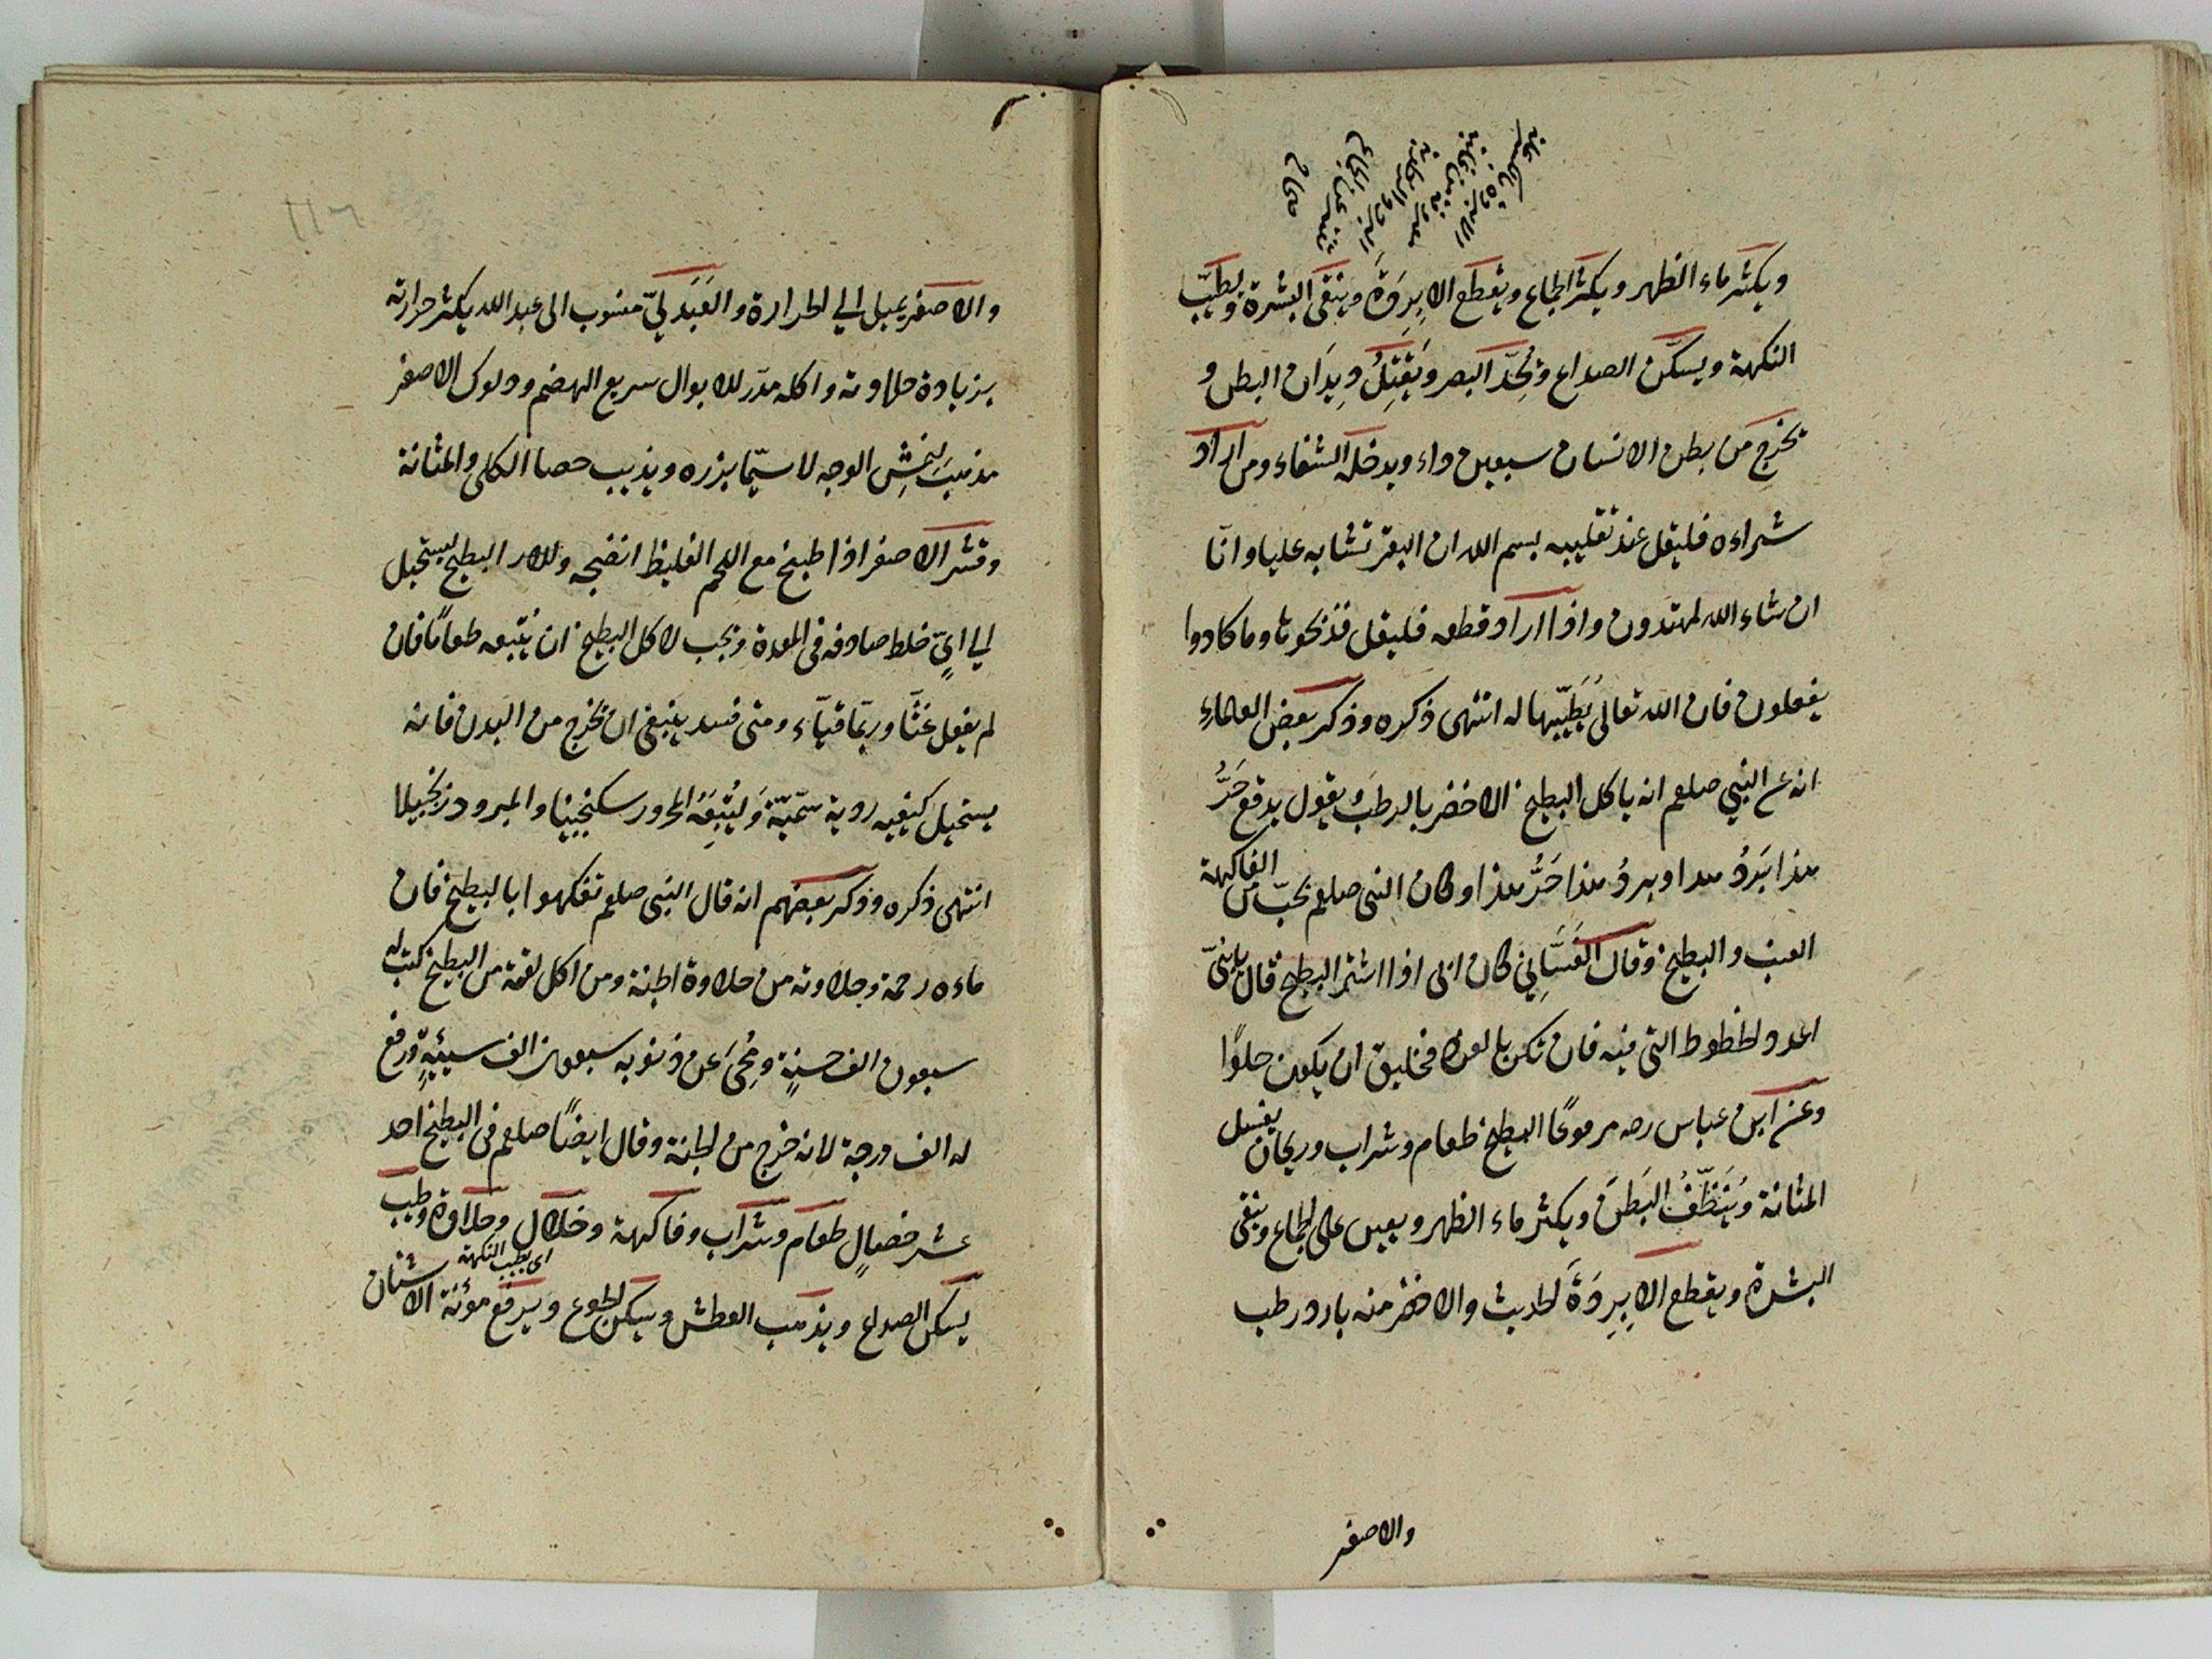 الابردة بالكسر علة
معروفة من غلبة
البرد والرطوبة
تفتر عن الجماع
صحاح
ويكثر ماء الظهر ويكثر الجماع ويقطع الاِبرِدَةَ وينقى البشرة ويطيّب
النكهة ويسكّن الصداع وتُحِدّ البصر ويَقتِلُ دِيدَان البطن و
يخرج من بطن الانسان سبعين داء ويدخله الشفاء ومن اراد
شراءه فليقل عند تقليبه بسم الله ان البقر تشابه علينا وانّا
ان شاء الله لمهتدون واذا اراد قطعه فليقل فذبحوها وما كادوا
يفعلون فان الله تعالى يُطَيّبها له انتهى ذكره وذكر بعض العلماءِ
انه عن النبي صلعم انه ياكل البطيخ الاخضر بالرطب ويقول يدفع حَرُّ
هذا بَردُ هذا وبردُ هذا حَرُّ هذا وكان النبى صلعم يحبّ من الفاكهة
العنب والبطيخ وقال الغَسَّانِي كان ابى اذا اشتر البطيخ قال يا بنىّ
اعدد الخطوط التى فيه فان تكن بالعدد فخليق ان يكون حلوًا
وعن ابن عباس رضه مرفوعًا البطيخ طعام وشراب وريحان يغسل
المثانة ويُنَظِّفُ البَطنَ ويكثر ماء الظهر ويعين على الجماع وينقى
البشرة ويقطع الاِبرِدَةَ الحديث والاخضر منه بارد رطب
والاصفر
والاصفر يميل الي الحرارة والعَبدَليّ منسوب الى عبد الله يكثر حرارته
بزيادة حلاوته واكله مدّر للابوال سريع الهضم ودلوك الاصفر
مذهب لنمشِ الوجه لا سيّما بزره ويذيب حصا الكلى والمثانة
وقشر الاصفر اذا طبخ مع اللحم الغليظ انضجه البطيخ يستحيل
الي ايّ خلط صادفه فى المعدة ويجب لاكل البطيخ ان يتبعه طعامًا فان
لم يفعل غثّا وربّما قيّآء ومتى فسد ينبغى ان يخرج من البدن فانه
يستحيل كيفيه ردية سمّيّة وَليُتبِعَهُ المحرور سكنجبينا والمبرود زنجبيلا
انتهى ذكره وذكر بعضهم انه قال النبى صلعم تفكهوا بالبطيخ فان
ماءه رحمة وحلاوته من حلاوة الجنة ومن اكل لقمة من البطيخ كتب له
سبعون الف حسنةٍ ومُحِىَ عن ذنوبه سبعون الف سيئةٍ ورفع
له الف درجة لانه خرج من الجنة وقال ايضًا صلعم فى البطيخ احد
عشر خصالٍ طعام وشراب وفاكهة وخلال وحلاوة وطيب
يسكن الصداع ويذهب العطش ويسكن الجوع ويرفع مؤنة الاشنان
اى يطيب النكهة